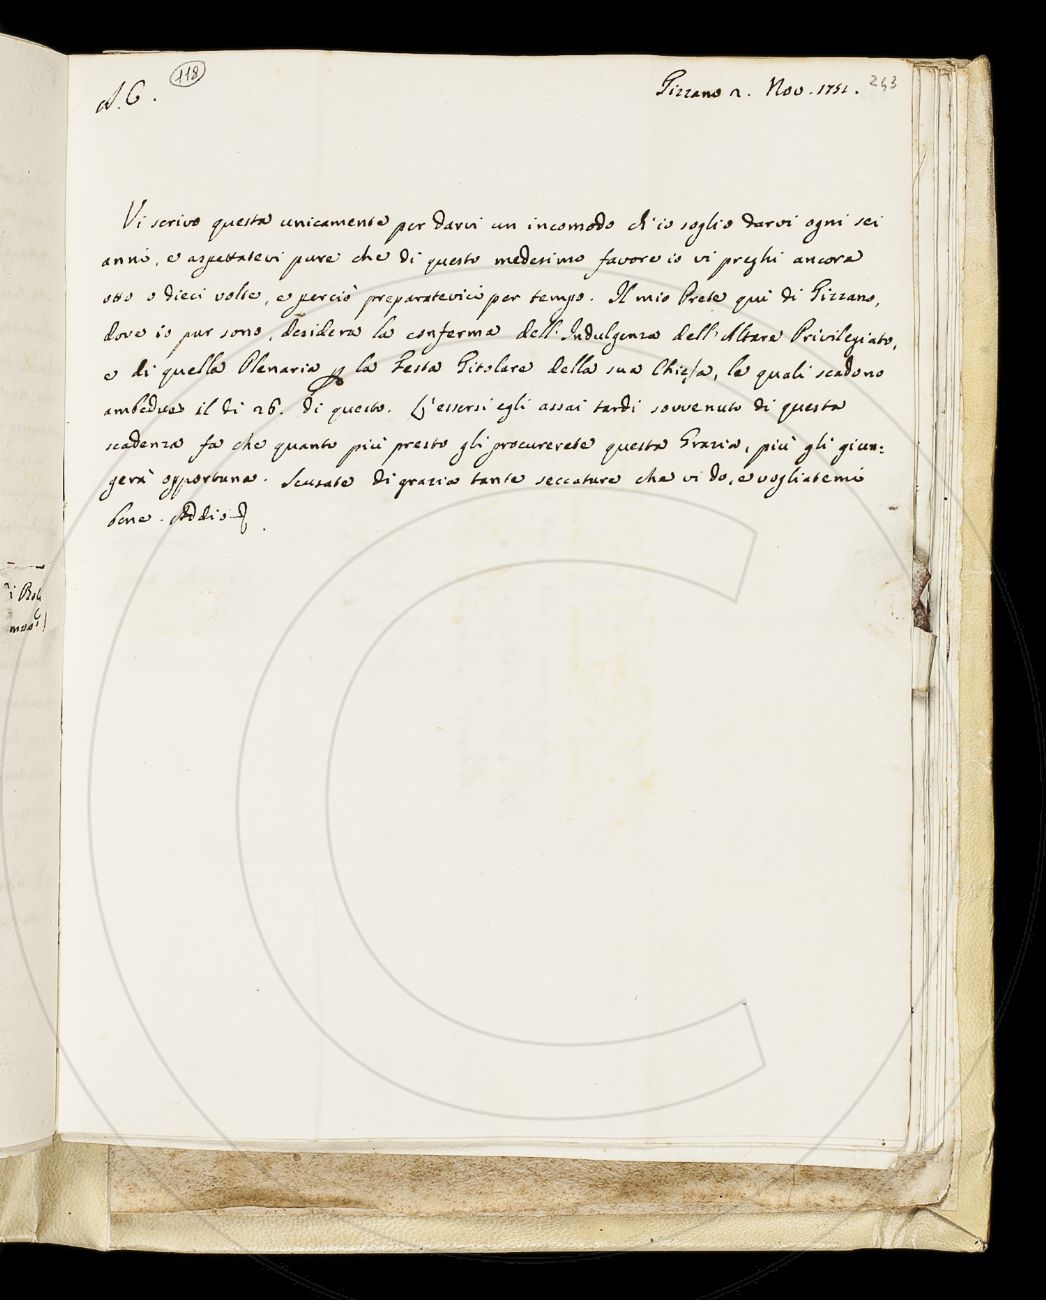 A. C.
118
Tizzano 2. Nov. 1751.
243
Vi scrivo questa unicamente per darvi un incomodo ch'io soglio darvi ogni sei
anni, e aspettatevi pure che di questo medesimo favore io vi preghi ancora
otto o dieci volte, e perciò preparatevici per tempo. Il mio Prete qui di Tizzano,
dove io pur sono, desidera la conferma dell'Indulgenza dell'Altare Privilegiato,
e di quella Plenaria p la Festa Titolare della sua Chiesa, le quali scadono
ambedue il dì 26. di questo. L'essersi egli assai tardi sovvenuto di questa
scadenza fa che quanto più presto gli procurerete questa Grazia, più gli giun=
gerà opportuna. Scusate di grazia tante seccature che vi do, e vogliatemi
bene. Addio